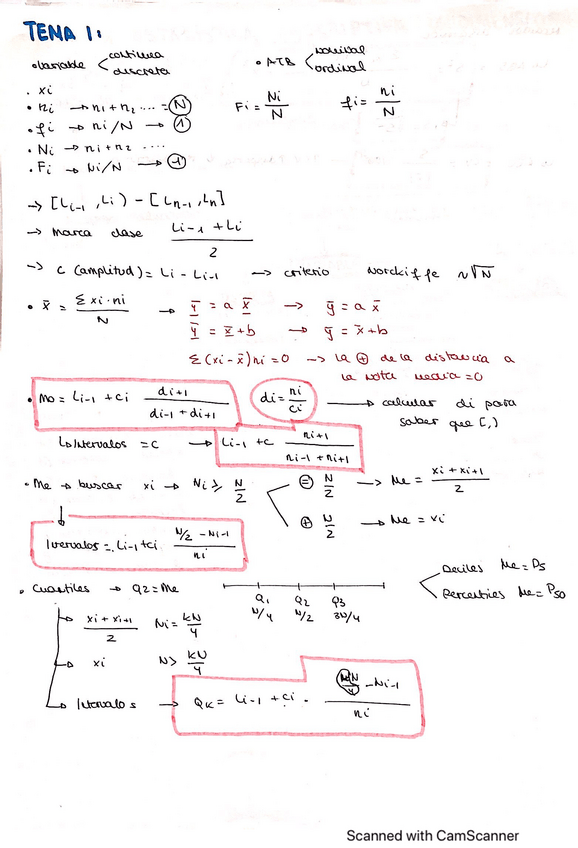 TEMA 1:
• Variable continua
discreta
• ATB nominal
ordinal
• xi
• ni → n1 + n2 .... = N
Fi = Ni/N
fi = ni/N
• fi → ni/N → 1
• Ni → ni + n2 ....
• Fi → Ni/N → 1
→ [Li-1, Li) - [Ln-1, Ln]
→ Marca clase (Li-1 + Li)/2
→ c (amplitud) = Li - Li-1 → criterio Norcliffe ~√N
• x̄ = Σ xi·ni / N → Y = a X → ȳ = a x̄
Y = X + b → ȳ = x̄ + b
Σ(xi - x̄)ni = 0 → la ⊕ de la distancia a
la nota media = 0
• Mo = Li-1 + ci di+1/(di-1 + di+1)
di = ni/ci → calcular di para
saber que [,)
Intervalos = c → Li-1 + c ni+1/(ni-1 + ni+1)
• Me → buscar xi → Ni ≥ N/2
= N/2 → Me = (xi + xi+1)/2
⊕ N/2 → Me = xi
Intervalos = Li-1 + ci (N/2 - Ni-1)/ni
• Cuartiles → Q2 = Me
Q1 Q2 Q3
N/4 N/2 3N/4
Deciles Me = P5
Percentiles Me = P50
→ (xi + xi+1)/2 Ni = kN/4
→ xi N> kN/4
→ Intervalos → QK = Li-1 + ci · (N/4 - Ni-1)/ni
Scanned with CamScanner